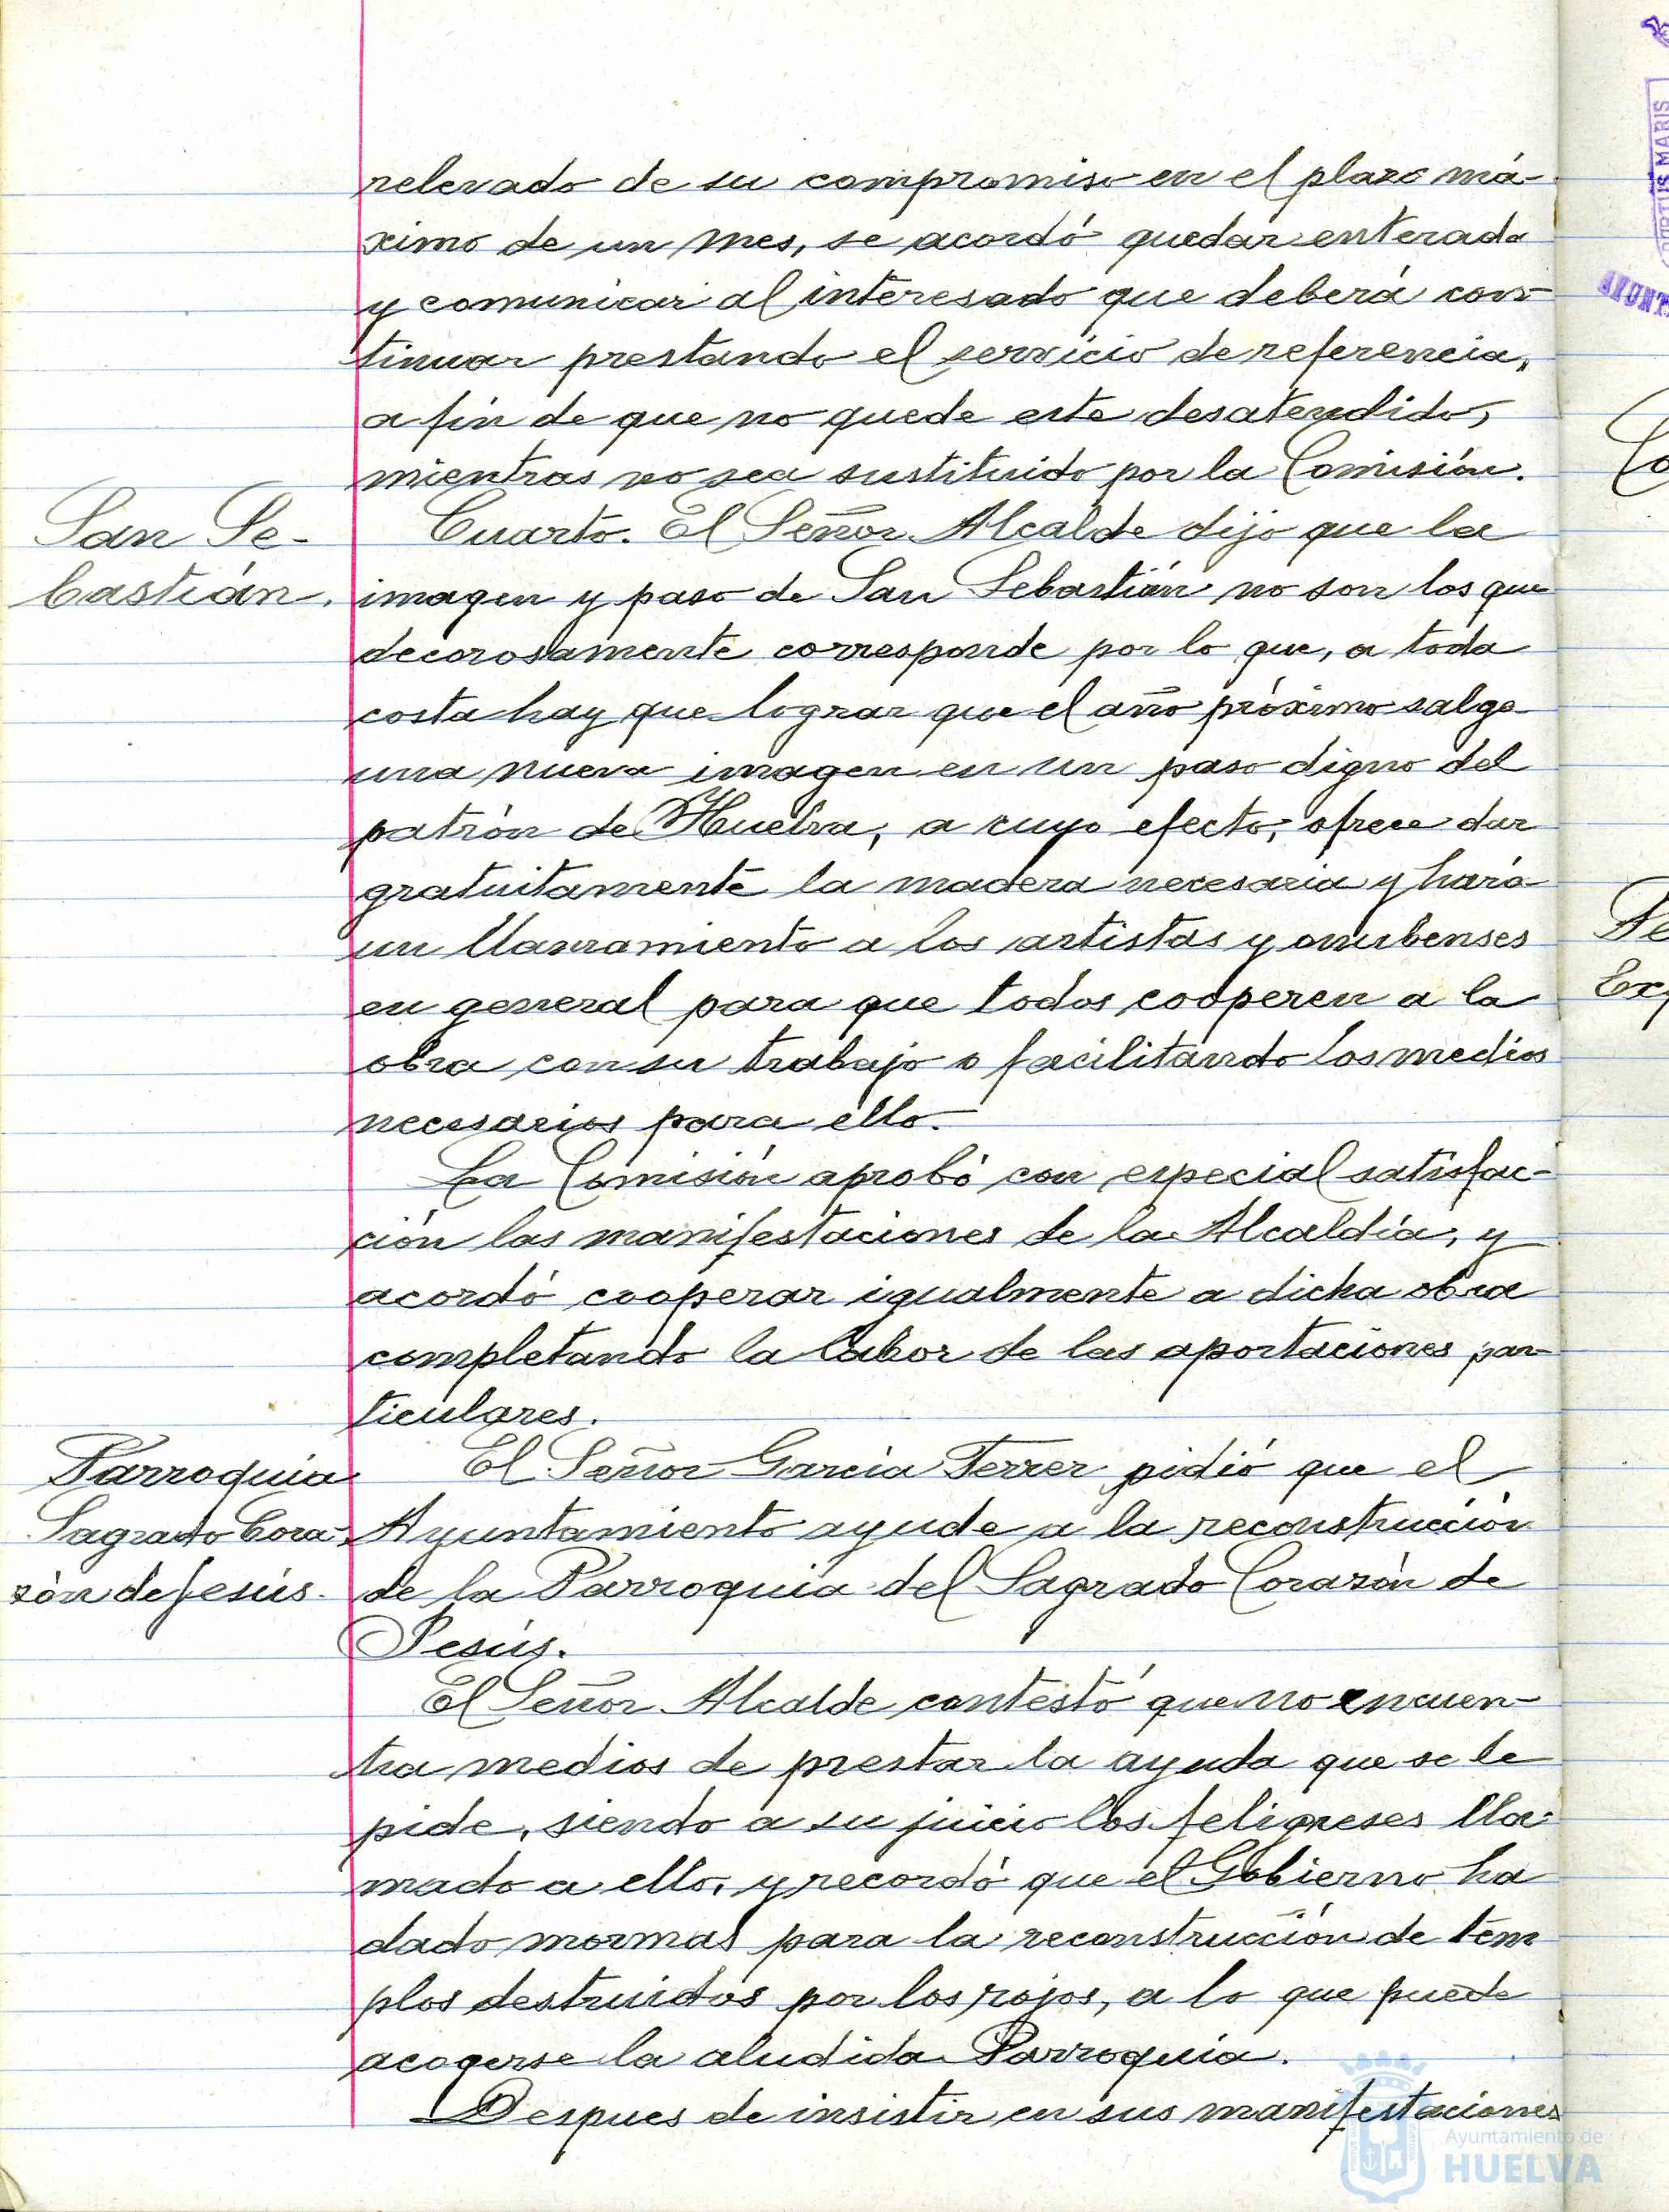 relevado de su compromiso en el plazo má-
ximo de un mes, se acordó quedar enterada
y comunicar al interesado que deberá con-
tinuar prestando el servicio de referencia,
a fin de que no quede este desatendido,
mientras no sea sustituido por la Comisión.
San Se-
bastián.
Cuarto. El Señor Alcalde dijo que la
imagen y paso de San Sebastián no son los que
decorosamente corresponde por lo que, a toda
costa hay que lograr que el año próximo salga
una nueva imagen en un paso digno del
patrón de Huelva, a cuyo efecto, ofrece dar
gratuitamente la madera necesaria y hará
un llamamiento a los artistas y onubenses
en general para que todos cooperen a la
obra con su trabajo o facilitando los medios
necesarios para ello.
La Comisión aprobó con especial satisfac-
ción las manifestaciones de la Alcaldía, y
acordó cooperar igualmente a dicha obra
completando la labor de las aportaciones par-
ticulares.
Parroquia
Sagrado Cora-
zón de Jesús.
El Señor García Ferrer pidió que el
Ayuntamiento ayude a la reconstrucción
de la Parroquia del Sagrado Corazón de
Jesús.
El Señor Alcalde contestó que no encuen-
tra medios de prestar la ayuda que se le
pide, siendo a su juicio los feligreses lla-
mado a ello, y recordó que el Gobierno ha
dado normas para la reconstrucción de tem
plos destruidos por los rojos, a lo que puede
acogerse la aludida Parroquia.
Despues de insistir en sus manifestaciones
Ayuntamiento de
HUELVA